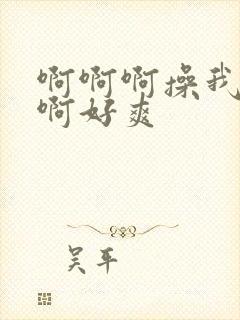 啊啊啊操我
啊好爽
吴平